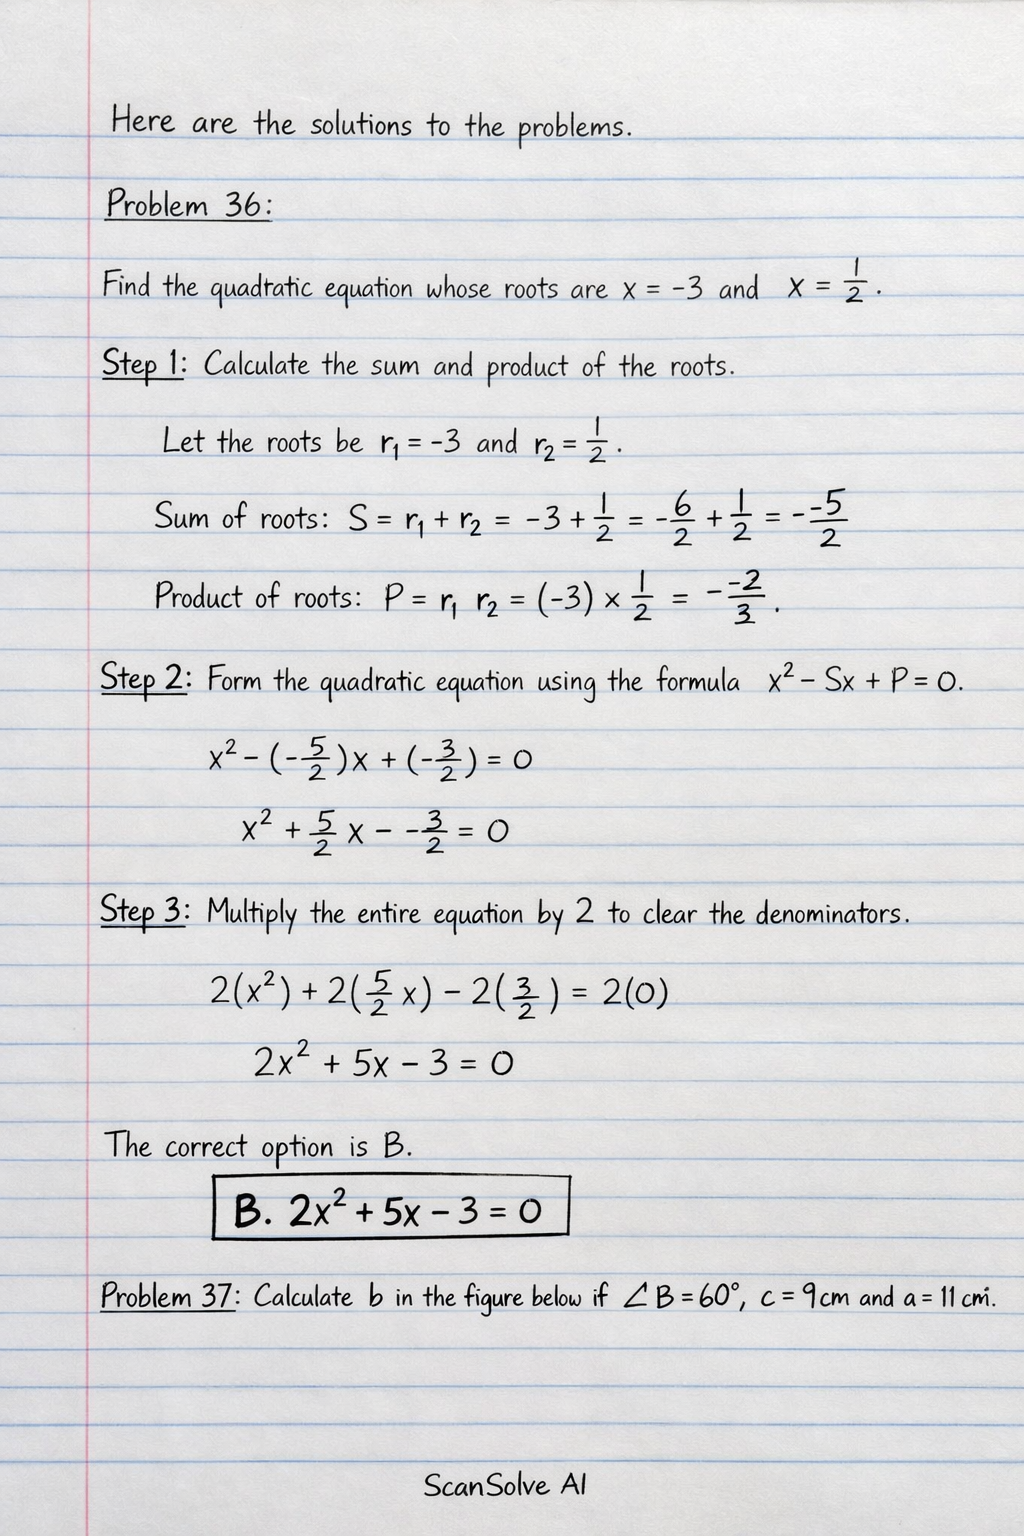 Here are the solutions to the problems.
Problem 36:
Find the quadratic equation whose roots are x = -3 and x = 1/2.
Step 1: Calculate the sum and product of the roots.
Let the roots be r₁ = -3 and r₂ = 1/2.
Sum of roots: S = r₁ + r₂ = -3 + 1/2 = -6/2 + 1/2 = --5/2
Product of roots: P = r₁ r₂ = (-3) × 1/2 = --2/3.
Step 2: Form the quadratic equation using the formula x² - Sx + P = 0.
x² - (-5/2)x + (-3/2) = 0
x² + 5/2 x - -3/2 = 0
Step 3: Multiply the entire equation by 2 to clear the denominators.
2(x²) + 2(5/2 x) - 2(3/2) = 2(0)
2x² + 5x - 3 = 0
The correct option is B.
B. 2x² + 5x - 3 = 0
Problem 37: Calculate b in the figure below if ∠B = 60°, c = 9 cm and a = 11 cm.
ScanSolve AI